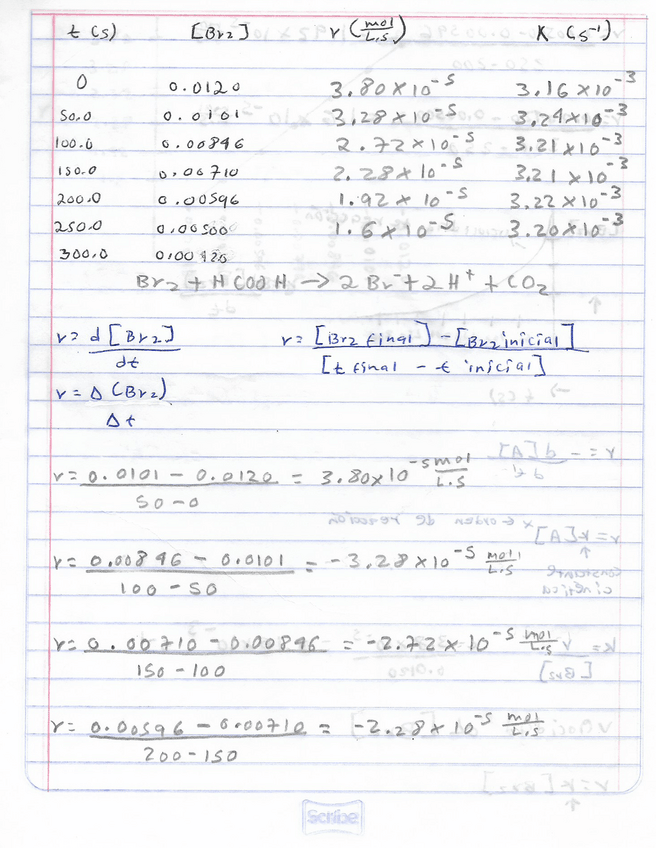 t (s) [Br₂] r (mol/L.s) K (s⁻¹)
0 0.0120 3.80x10⁻⁵ 3.16x10⁻³
50.0 0.0101 3.28x10⁻⁵ 3.24x10⁻³
100.0 0.00846 2.72x10⁻⁵ 3.21x10⁻³
150.0 0.00710 2.28x10⁻⁵ 3.21x10⁻³
200.0 0.00596 1.92x10⁻⁵ 3.22x10⁻³
250.0 0.00500 1.6x10⁻⁵ 3.20x10⁻³
300.0 0.00420
Br₂ + HCOOH → 2Br⁻ + 2H⁺ + CO₂
r = d[Br₂]/dt r = [Br₂ final] - [Br₂ inicial]/[t final - t inicial]
r = Δ(Br₂)/Δt
r = 0.0101 - 0.0120/50-0 = 3.80x10⁻⁵ mol/L.s
r = 0.00846 - 0.0101/100-50 = -3.28x10⁻⁵ mol/L.s
r = 0.00710 - 0.00846/150-100 = -2.72x10⁻⁵ mol/L.s
r = 0.00596 - 0.00710/200-150 = -2.28x10⁻⁵ mol/L.s
Scribe